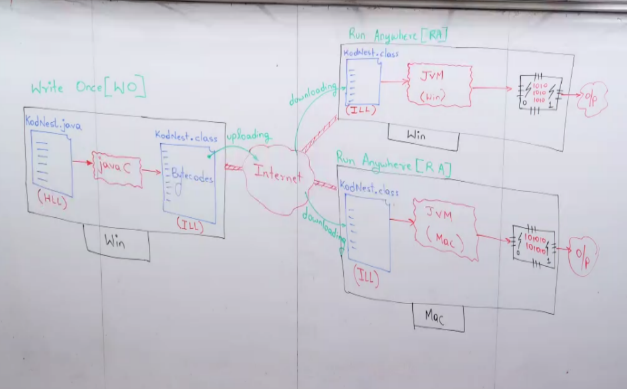 Write Once [WO]
KodNest.java
(HLL)
javaC
KodNest.class
Bytecodes
(ILL)
Win
uploading
Internet
downloading
downloading
Run Anywhere [RA]
KodNest.class
(ILL)
JVM
(Win)
1010
1010
1010
0 1
O/P
Win
Run Anywhere [RA]
KodNest.class
(ILL)
JVM
(Mac)
10101
10100
0 1
O/P
Mac